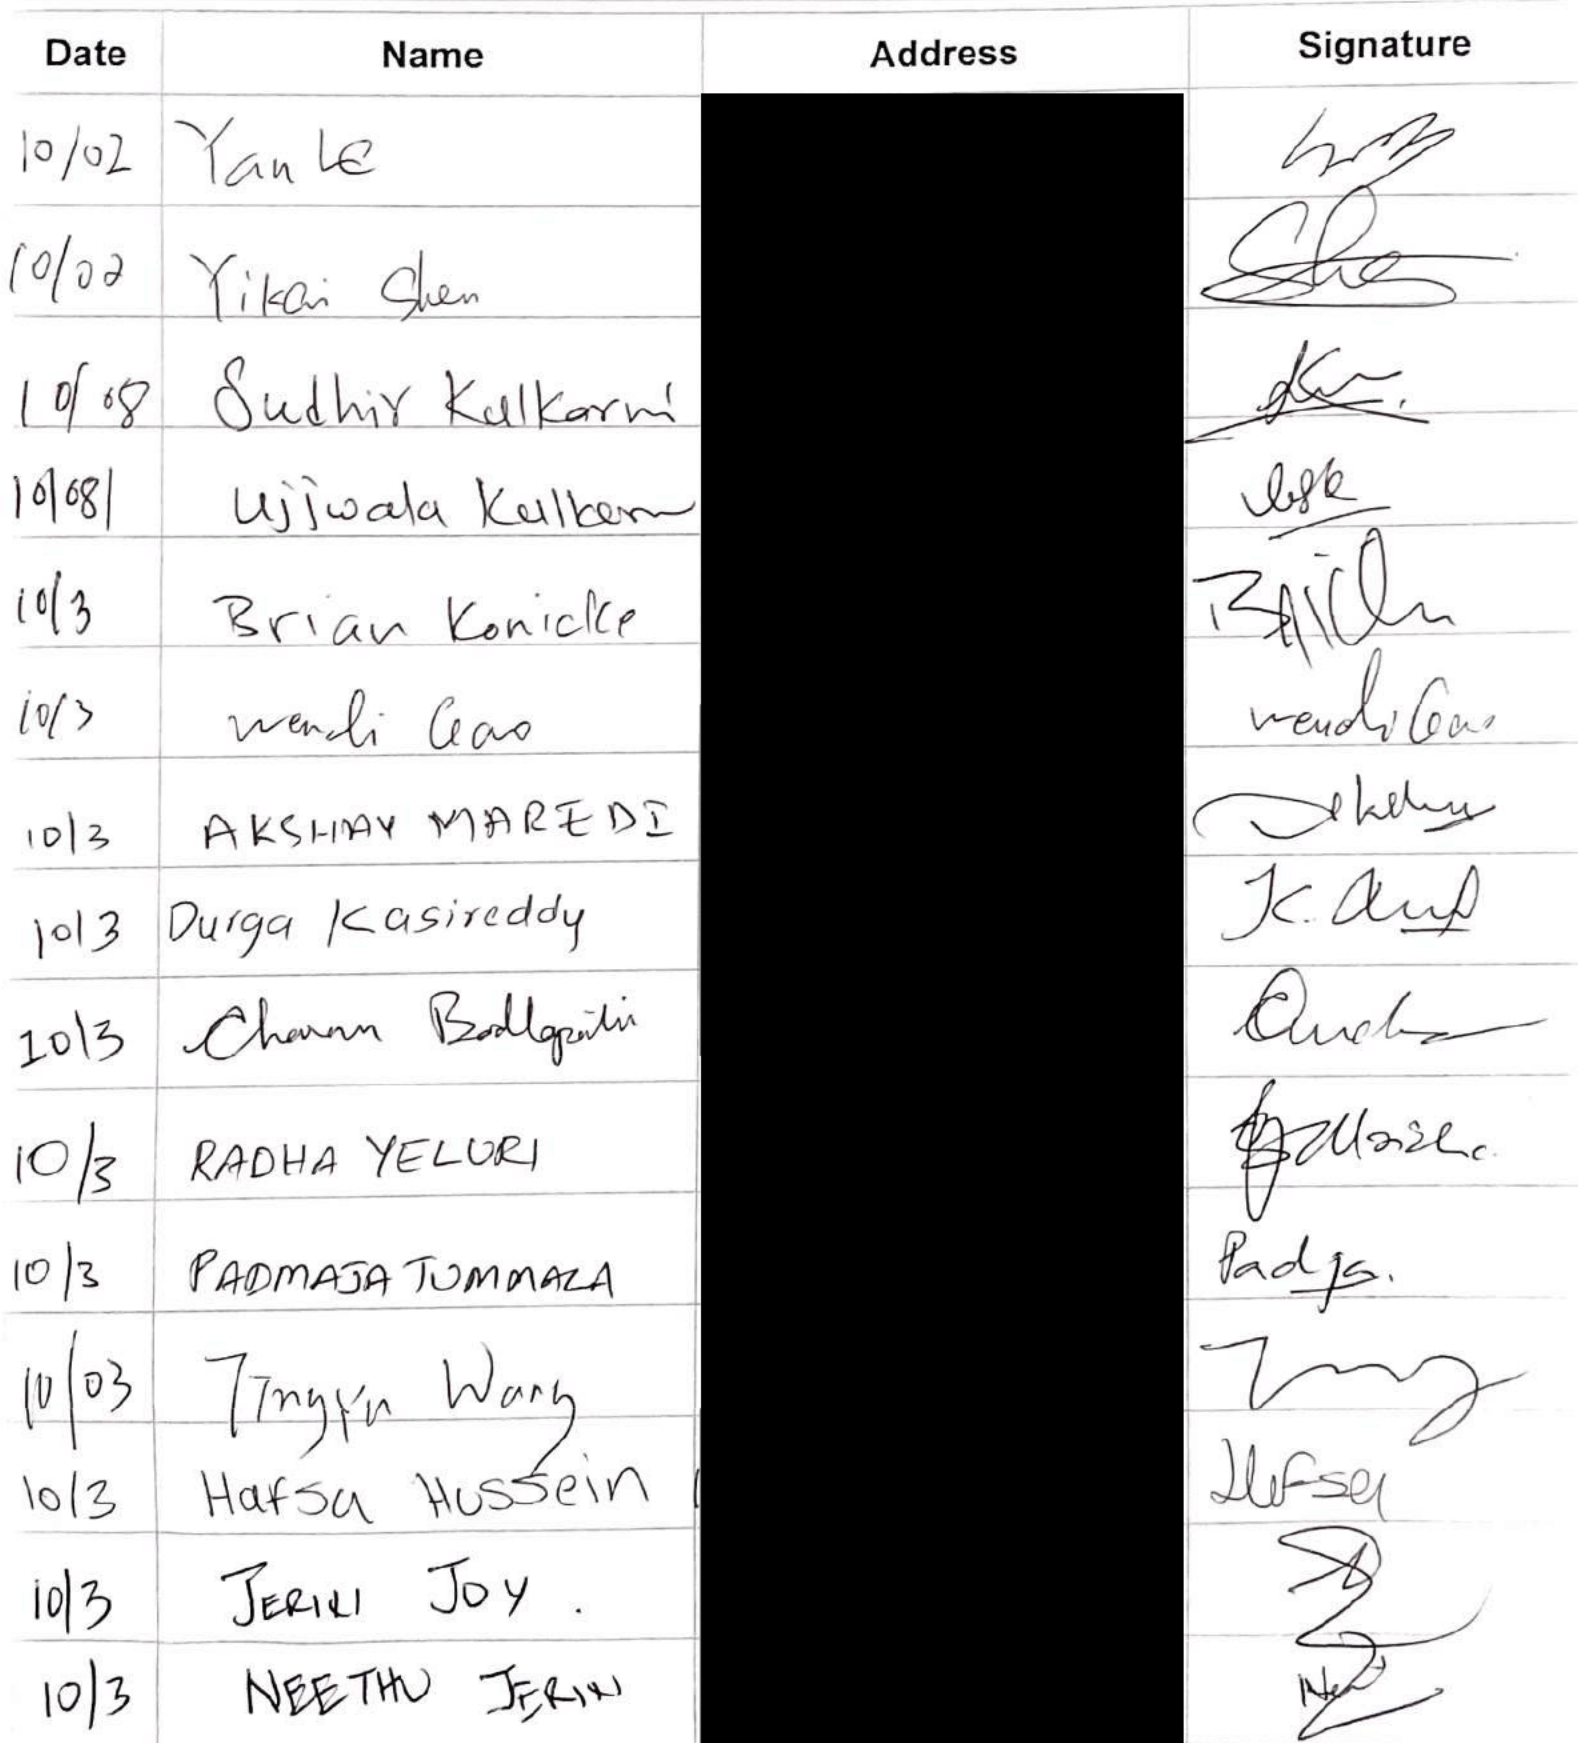 Date Name Address Signature
10/02 Yan Le
10/02 Yikai Shen Shen
10/08 Sudhir Kulkarni
10/08 Ujjwala Kulkarni
10/3 Brian Konicke
10/3 wendi Gao wendi Gao
10/3 AKSHAY MAREDI
10/3 Durga Kasireddy
10/3 Charan
10/3 RADHA YELURI
10/3 PADMAJA TUMMALA Padja.
10/03 Tingyu Wang
10/3 Hafsa Hussein Hafsa
10/3 JERIN JOY.
10/3 NEETHU JERIN